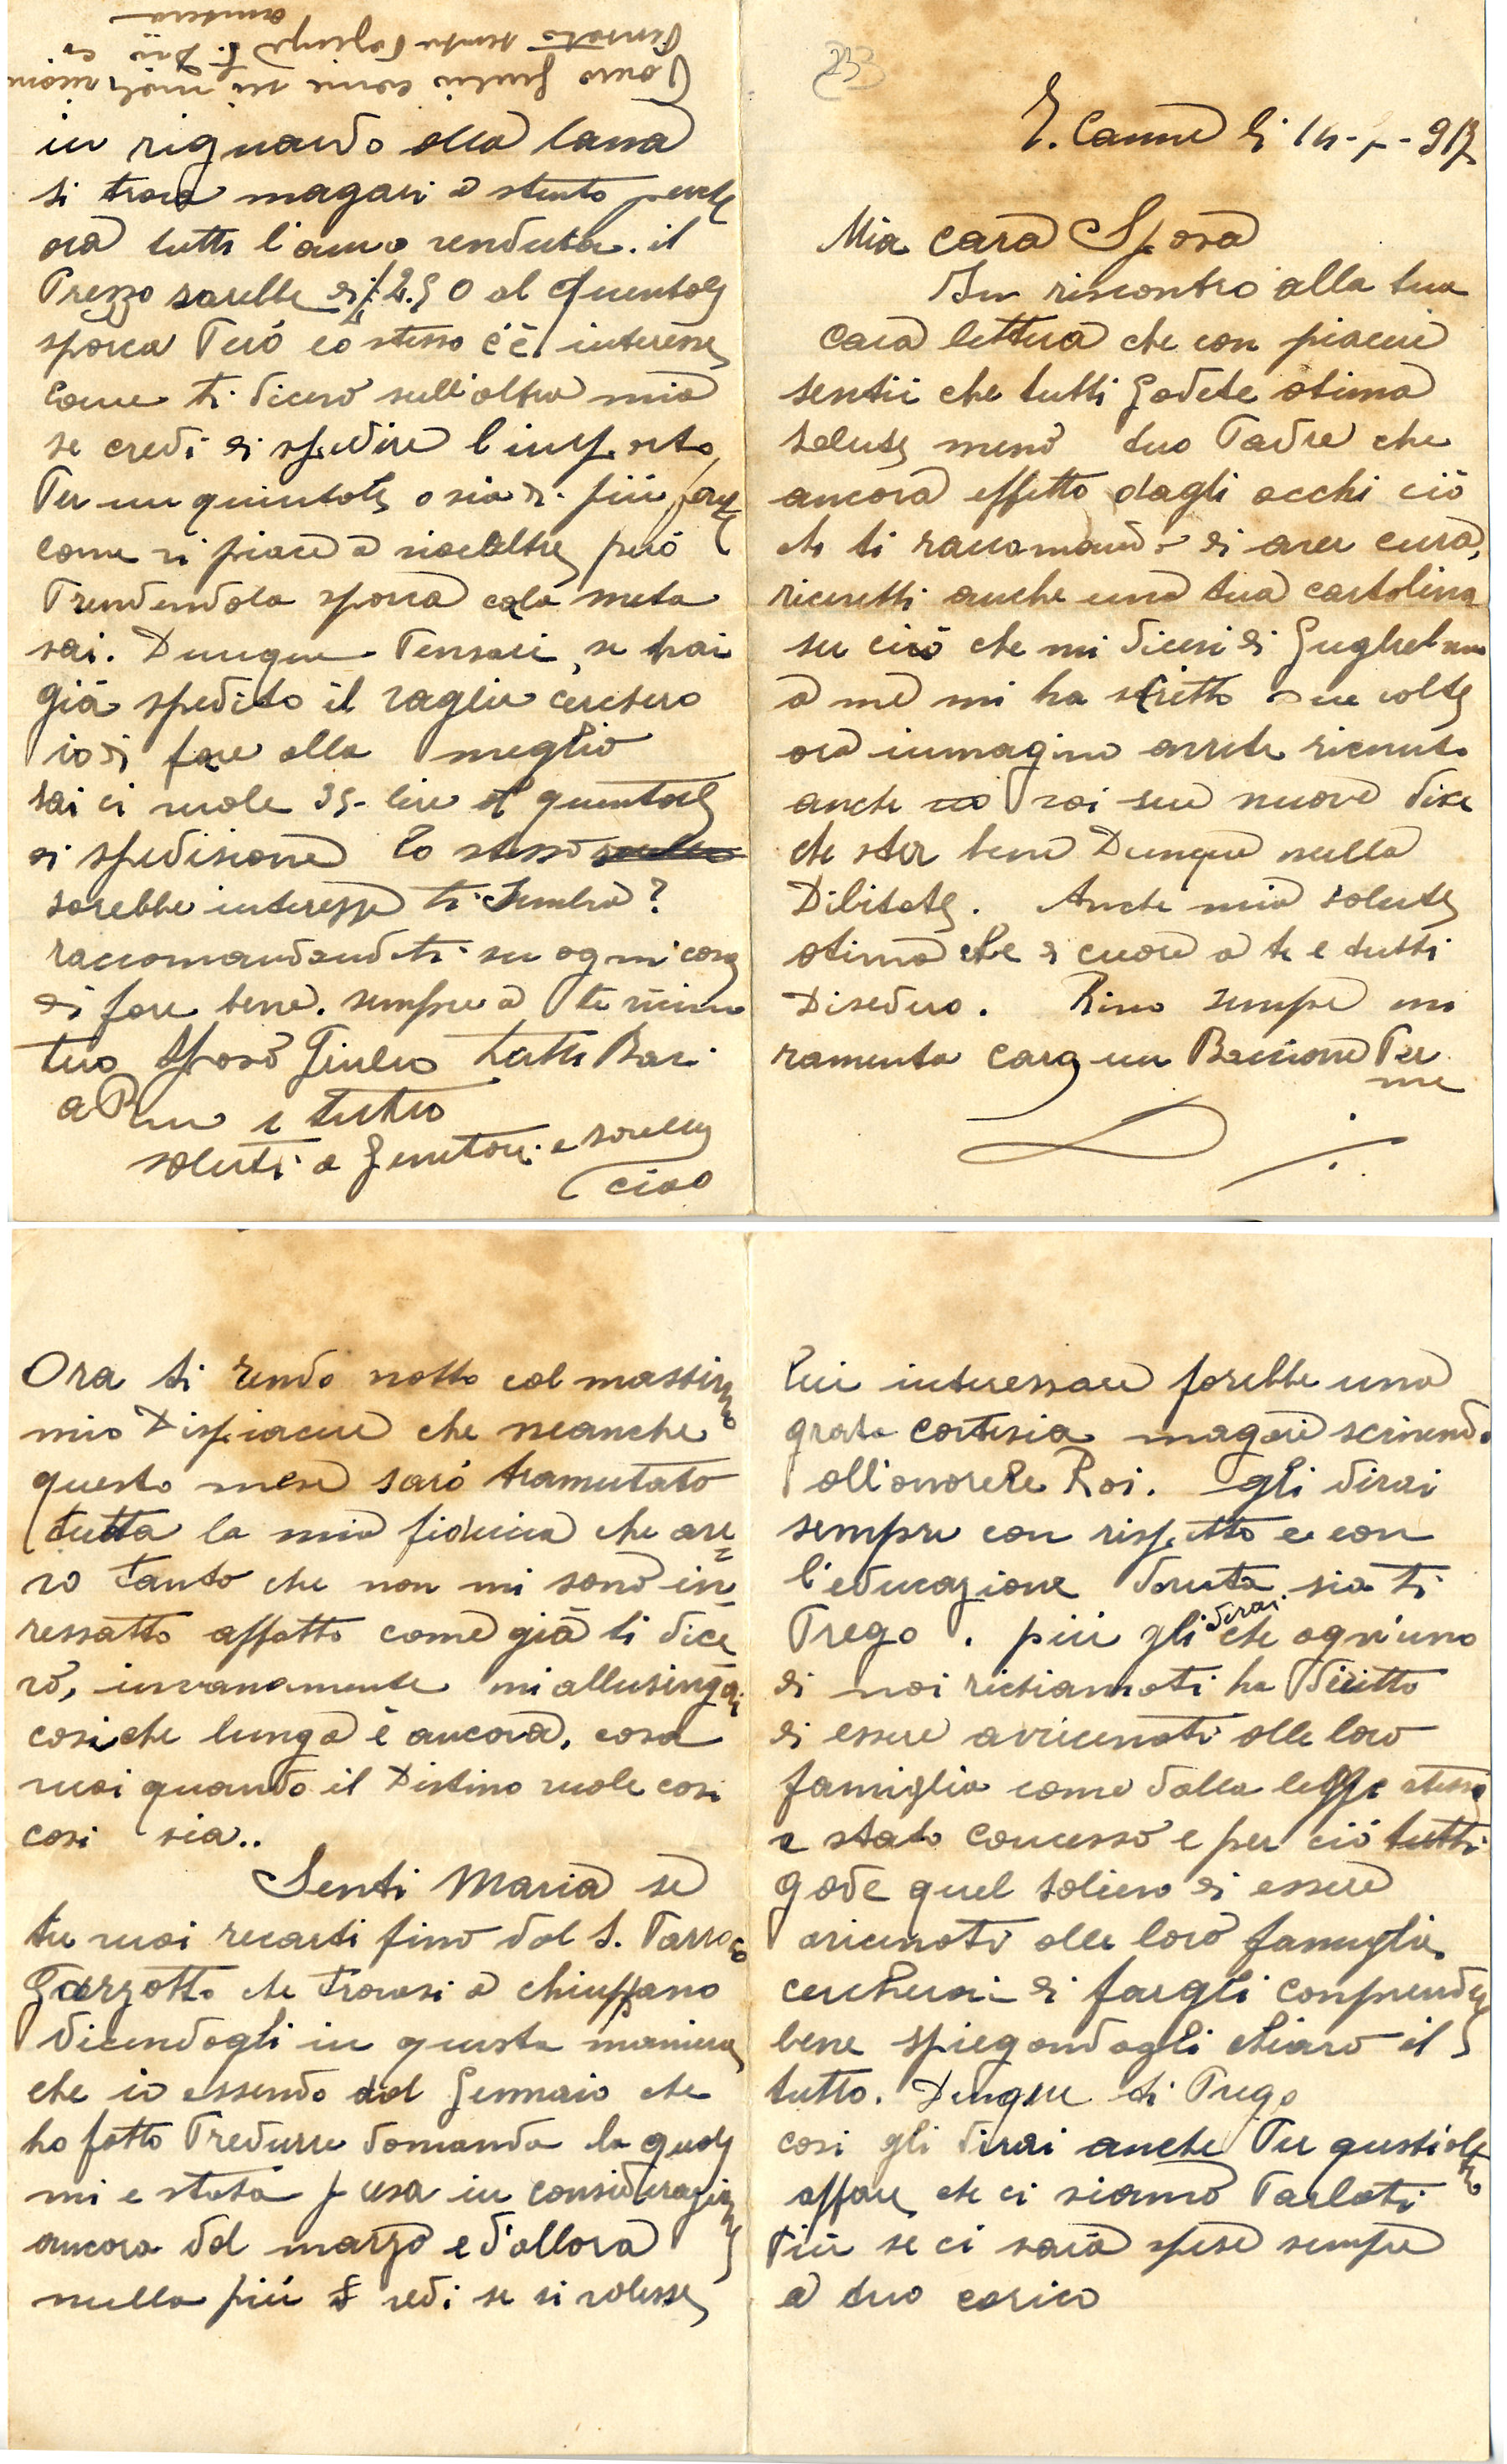 233
T. Canne li 14-5-917
Mia cara Sposa
In riscontro alla tua
cara lettera che con piacere
sentii che tutti godete otima
salute meno tuo Padre che
ancora effetto dagli occhi ciò
che ti raccomando di aver cura,
ricevetti anche una tua cartolina
su ciò che mi dicevi di Guglielmo
a me mi ha scritto due volte
ora immagino avrete ricevuto
anche voi sue nuove dice
che ster bene Dunque nulla
Dibitate. Anche mia salute
otima che di cuore a te e tutti
Disedero. Rino sempre mi
ramenta cara un Bacione Per
me
Ora ti rendo notto col massimo
mio Dispiacere che neanche
questo mese sarò tramutato
tutta la mia fiducia che ave=
vo tanto che non mi sono in=
ressatto affatto come già ti dice
vo, invanamente mi allusingai
cosiche lunga è ancora, cosa
vuoi quando il Distino vuole cosi
cosi sia..
Senti Maria se
tu vuoi recarti fino dal S. Parroco
Garzotto che trovasi a chiuppano
dicendogli in questa maniera
che io essendo dal Gennaio che
ho fatto Tredurre domanda la quale
mi e stata presa in considerazione
ancora dal marzo e d'allora
nulla più vedi se si volesse
lui interessare farebbe una
grata cortesia magari scrivendo
all'onorele Roi. gli dirai
sempre con rispetto e con
l'educazione dovuta sia ti
Prego. più gli dirai che ogni uno
di noi richiamati ha diritto
di essere avvicinati alle loro
famiglia come dalla legge stessa
e stato concesso e per ciò tutti
gode quel solievo di essere
avicinati alle loro famiglie
cercherai di fargli conprendere
bene spiegandogli chiaro il
tutto. Dunque ti Prego
cosi gli dirai anche Per questi altro
affare che ci siamo Parlati
Più se ci sarà spese sempre
a tuo carico
in riguardo alla lana
si trova magari a stento perche
ora tutti l'anno venduta. il
Prezzo sarebbe di £ 250 al quentale
sporca Però lo stesso c'è interesse
come ti dicevo sull'altra mia
se credi di spedire l'importo
Per un quintale o sia di più
come vi piace a voialtre però
Prendendola sporca cala meta
sai. Dunque Pensaci, se hai
già spedito il vaglie cerchero
io di fare alla meglio
sai ci vuole 35- lire al quentale
di spedisione Lo stesso
sarebbe interesse ti Sembra?
raccomandandoti su ogni cosa
di fare bene. sempre a te vicino
tuo Sposo Giulio tutti Baci
a Rino e tutto
saluti a Genitori e sorelle
ciao